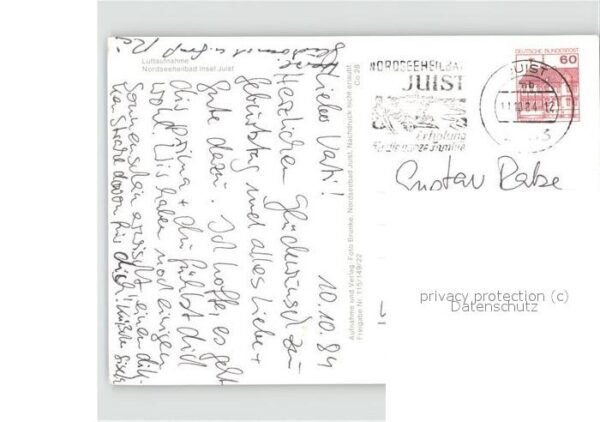 Luftaufnahme
Nordseeheilbad Insel Juist
Co 28
10.10.84
Lieber Vati!
Herzlichen Glückwunsch zum
Geburtstag und alles Liebe +
Gute dazu. Ich hoffe, es geht
dir prima + du fühlst dich
wohl. Wir haben noch einigen
Sonnenschein erwischt einen dicken
Strahl davon für dich!
Aufnahme und Verlag: Foto Brunke, Nordseebad Juist. Nachdruck nicht erlaubt
Freigabe Nr. 115/149/22
NORDSEEHEILBAD
JUIST
Erholung
für die ganze Familie
JUIST
11.10.84-12
DEUTSCHE BUNDESPOST
60
Gustav Rabe
privacy protection (c)
Datenschutz